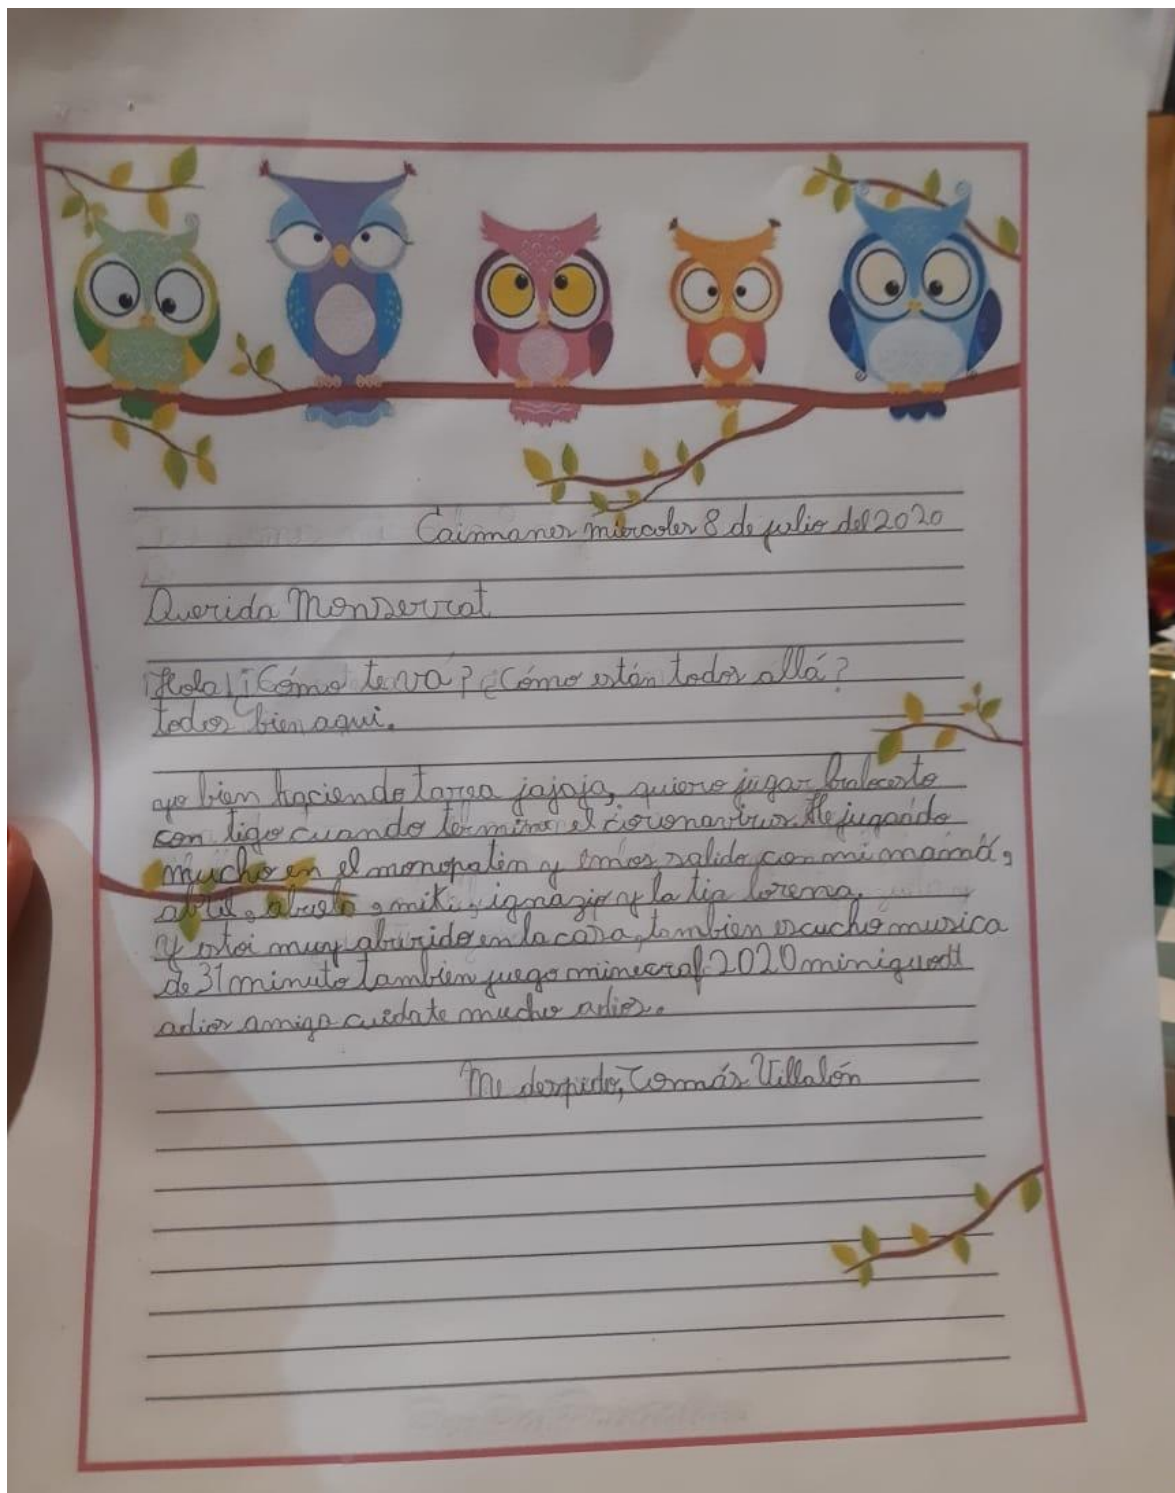 Caimanes miercoles 8 de julio del 2020
Querida Monserrat
¡Hola! ¿Cómo te va? ¿Cómo están todos allá?
todos bien aqui.
yo bien haciendo tarea jajaja, quiero jugar
con tigo cuando termine el coronavirus. He jugando
mucho en el monopatin y emos salido con mi mamá,
abril, abuelo, miki, ignazio y la tia lorena.
y estoi muy aburrido en la casa, tambien escucho musica
de 31 minuto tambien juego minecraf 2020
adios amiga cuidate mucho adios.
Me despido, Tomás Villalón